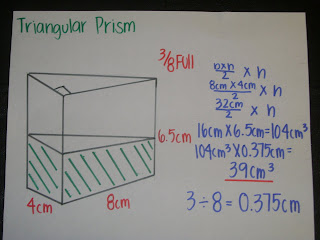 Triangular Prism
3/8 Full
b×h/2 × h
8cm × 4cm/2 × h
32cm/2 × h
16cm × 6.5cm = 104cm³
104cm³ × 0.375cm =
39cm³
3 ÷ 8 = 0.375cm
6.5cm
4cm
8cm